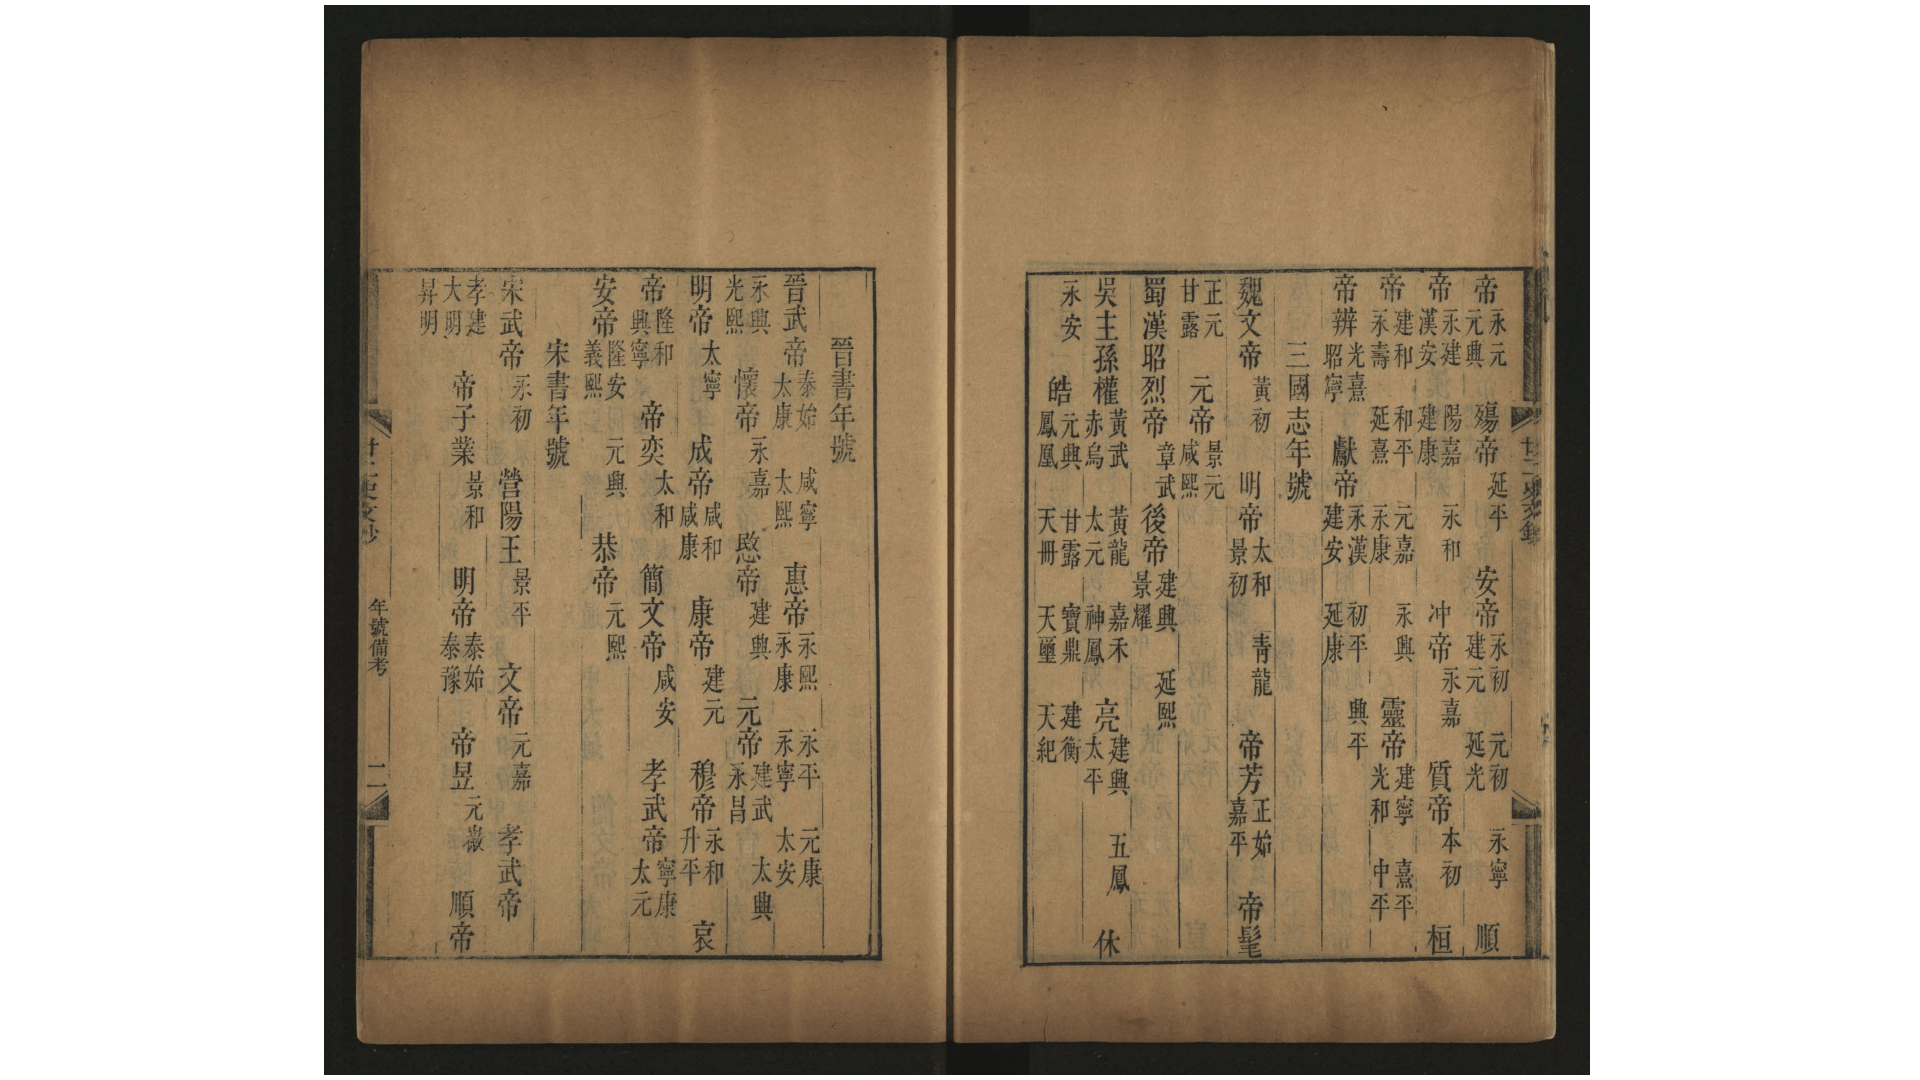 廿二史文鈔
帝 永元 元興 殤帝 延平 安帝 永初 元初 永寧 建元 延光 順
帝 永建 陽嘉 永和 漢安 建康 冲帝 永嘉 質帝 本初 桓
帝 建和 和平 元嘉 永興 永壽 延熹 永康 靈帝 建寧 熹平 光和 中平
帝辨 光熹 昭寧 獻帝 永漢 初平 興平 建安 延康
三國志年號
魏文帝 黃初 明帝 太和 青龍 景初 帝芳 正始 嘉平 帝髦
正元 甘露 元帝 景元 咸熙
蜀漢昭烈帝 章武 後帝 建興 延熙 景耀
吳主孫權 黃武 黃龍 嘉禾 赤烏 太元 神鳳 亮 建興 五鳳 太平 休
永安 皓 元興 甘露 寶鼎 建衡 鳳凰 天冊 天璽 天紀
晉書年號
晉武帝 泰始 咸寧 太康 太熙 惠帝 永熙 永平 元康 永康 永寧 太安
永興 光熙 懷帝 永嘉 愍帝 建興 元帝 建武 太興 永昌
明帝 太寧 成帝 咸和 咸康 康帝 建元 穆帝 永和 升平 哀
帝 隆和 興寧 帝奕 太和 簡文帝 咸安 孝武帝 寧康 太元
安帝 隆安 元興 義熙 恭帝 元熙
宋書年號
宋武帝 永初 營陽王 景平 文帝 元嘉 孝武帝
孝建 大明 帝子業 景和 明帝 泰始 泰豫 帝昱 元徽 順帝
昇明
廿二史文鈔 年號備考 二